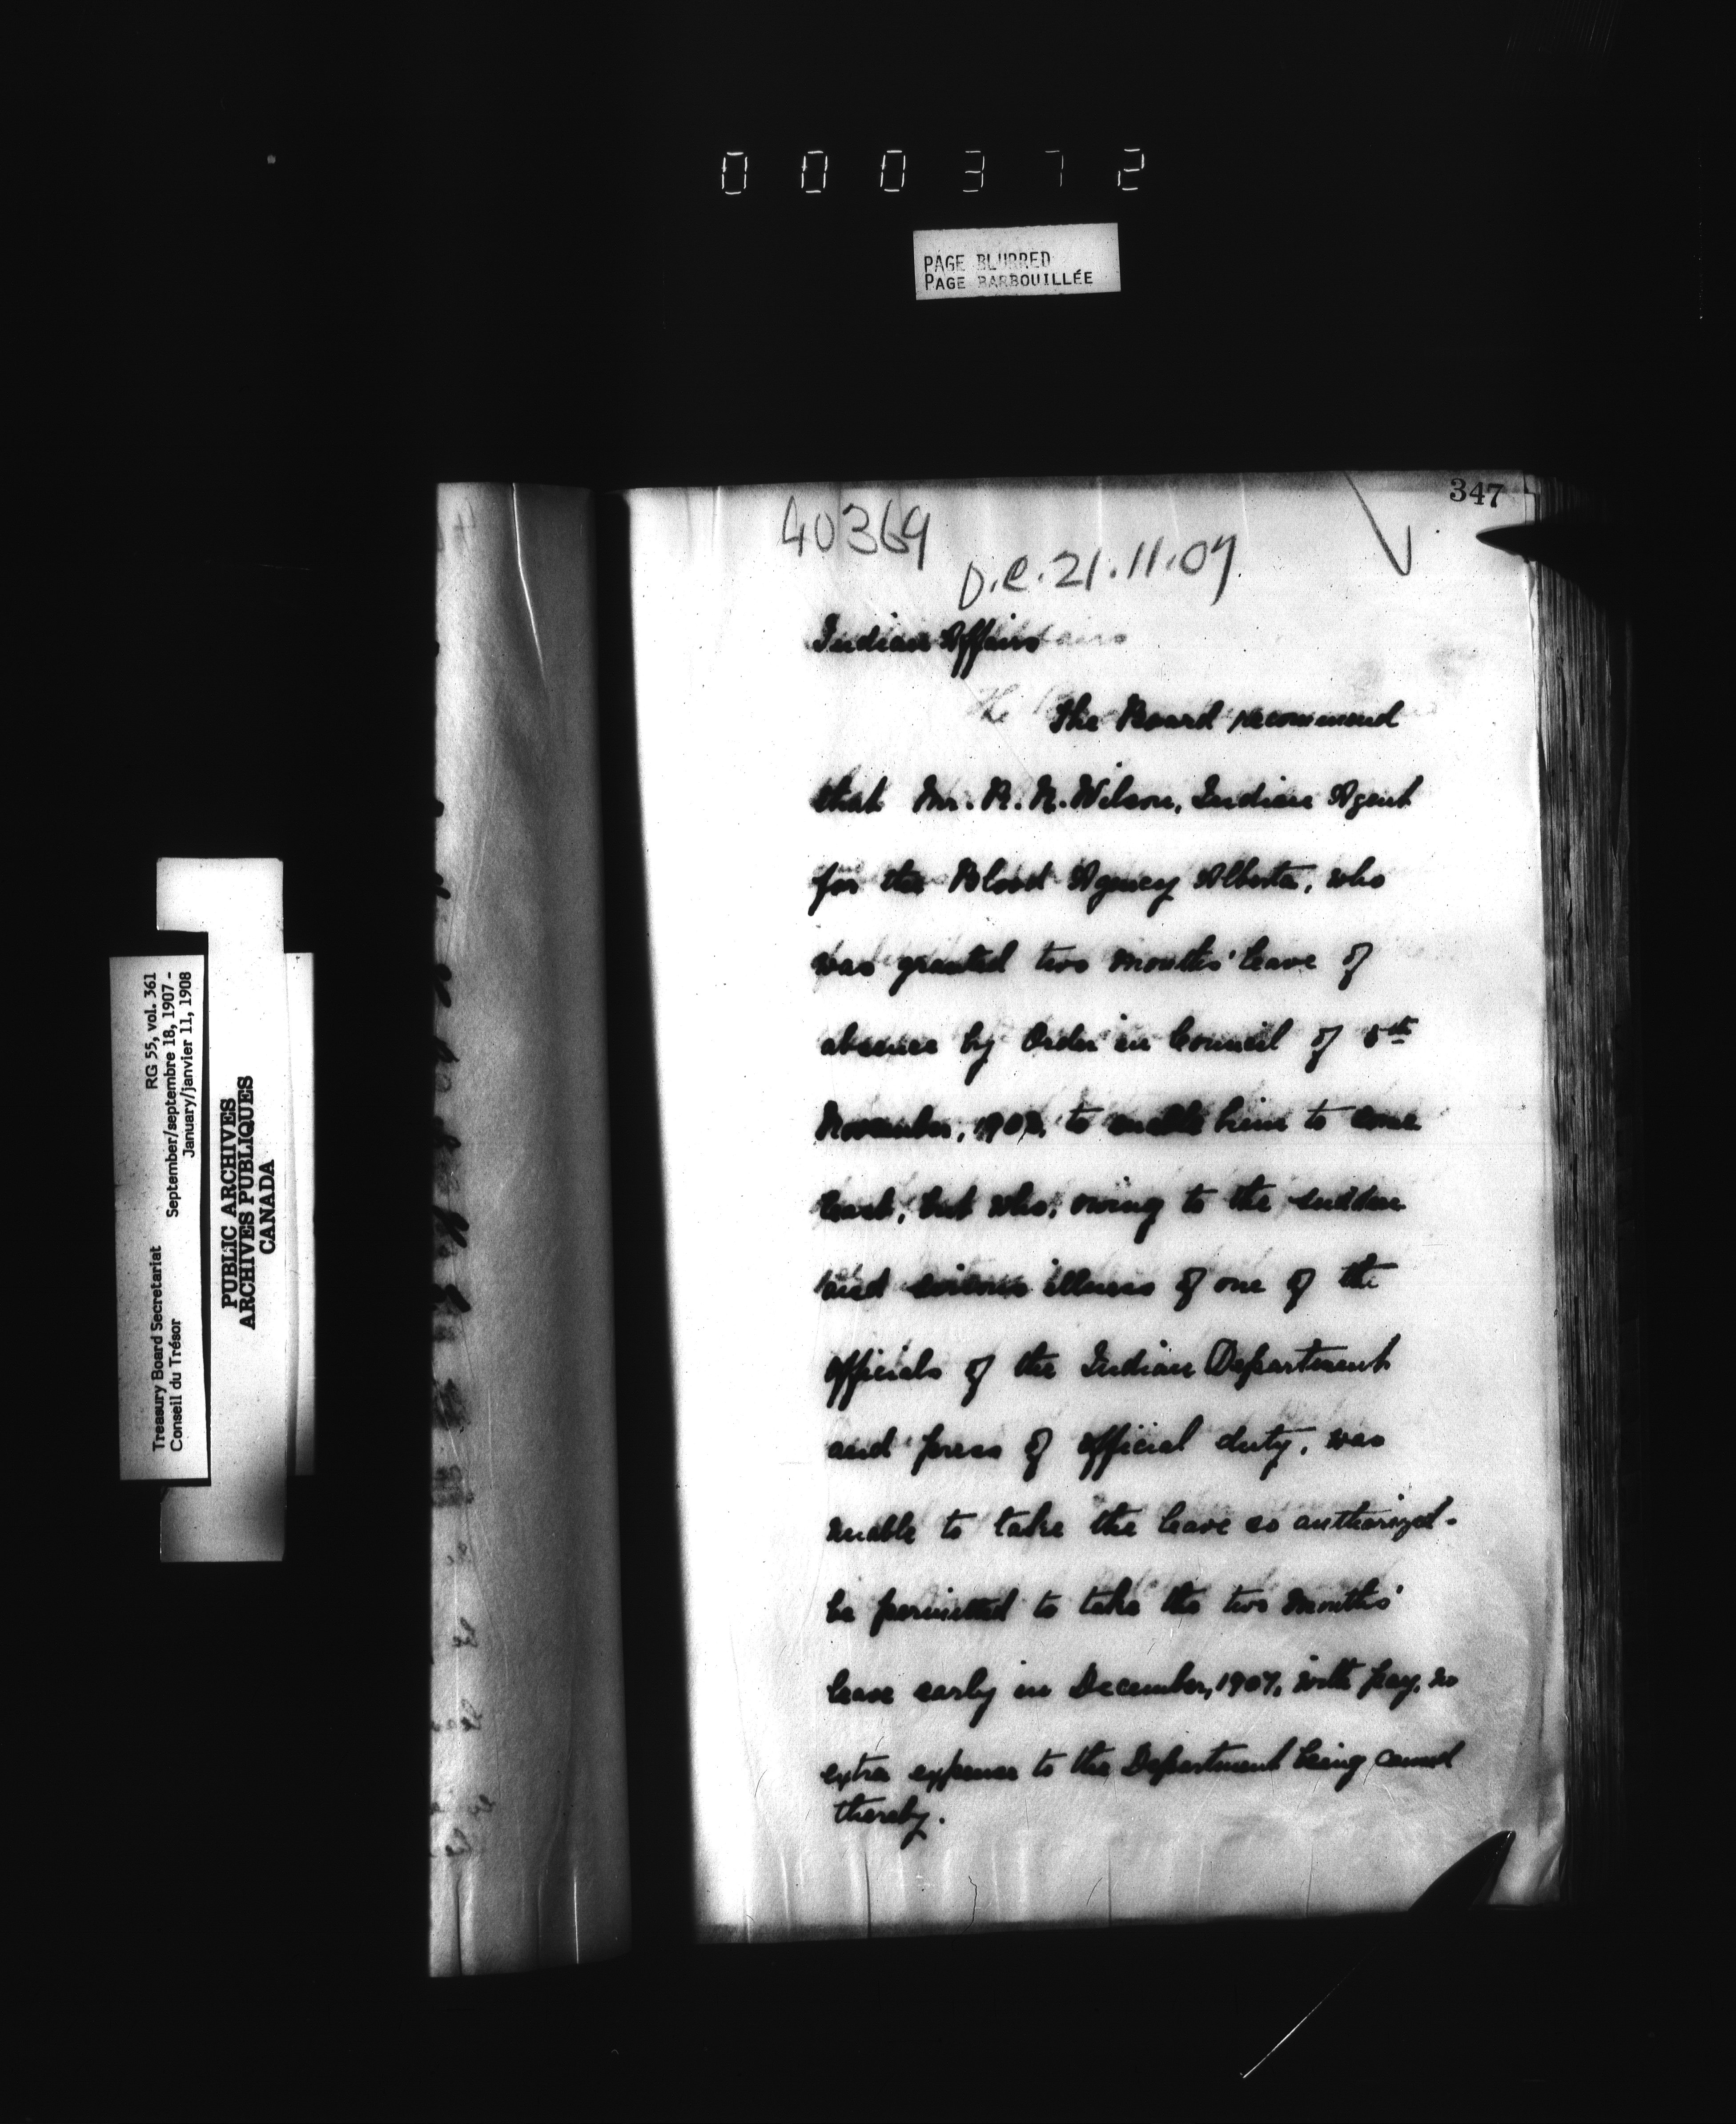 000372
PAGE BLURRED
PAGE BARBOUILLÉE
Treasury Board Secretariat RG 55, vol. 361
Conseil du Trésor September/septembre 18, 1907 -
January/janvier 11, 1908
PUBLIC ARCHIVES
ARCHIVES PUBLIQUES
CANADA
347
40369
O.C. 21.11.07
Indian Affairs
The Board recommend
that Mr. R. N. Wilson, Indian Agent
for the Blood Agency Alberta, who
was granted two months' leave of
absence by Order in Council of 5th
November, to enable him to come
East, but who, owing to the sudden
and serious illness of one of the
Officials of the Indian Department
and press of official duty, was
unable to take the leave so authorized -
be permitted to take the two months'
leave early in December, 1907, with pay, no
extra expense to the Department being caused
thereby.